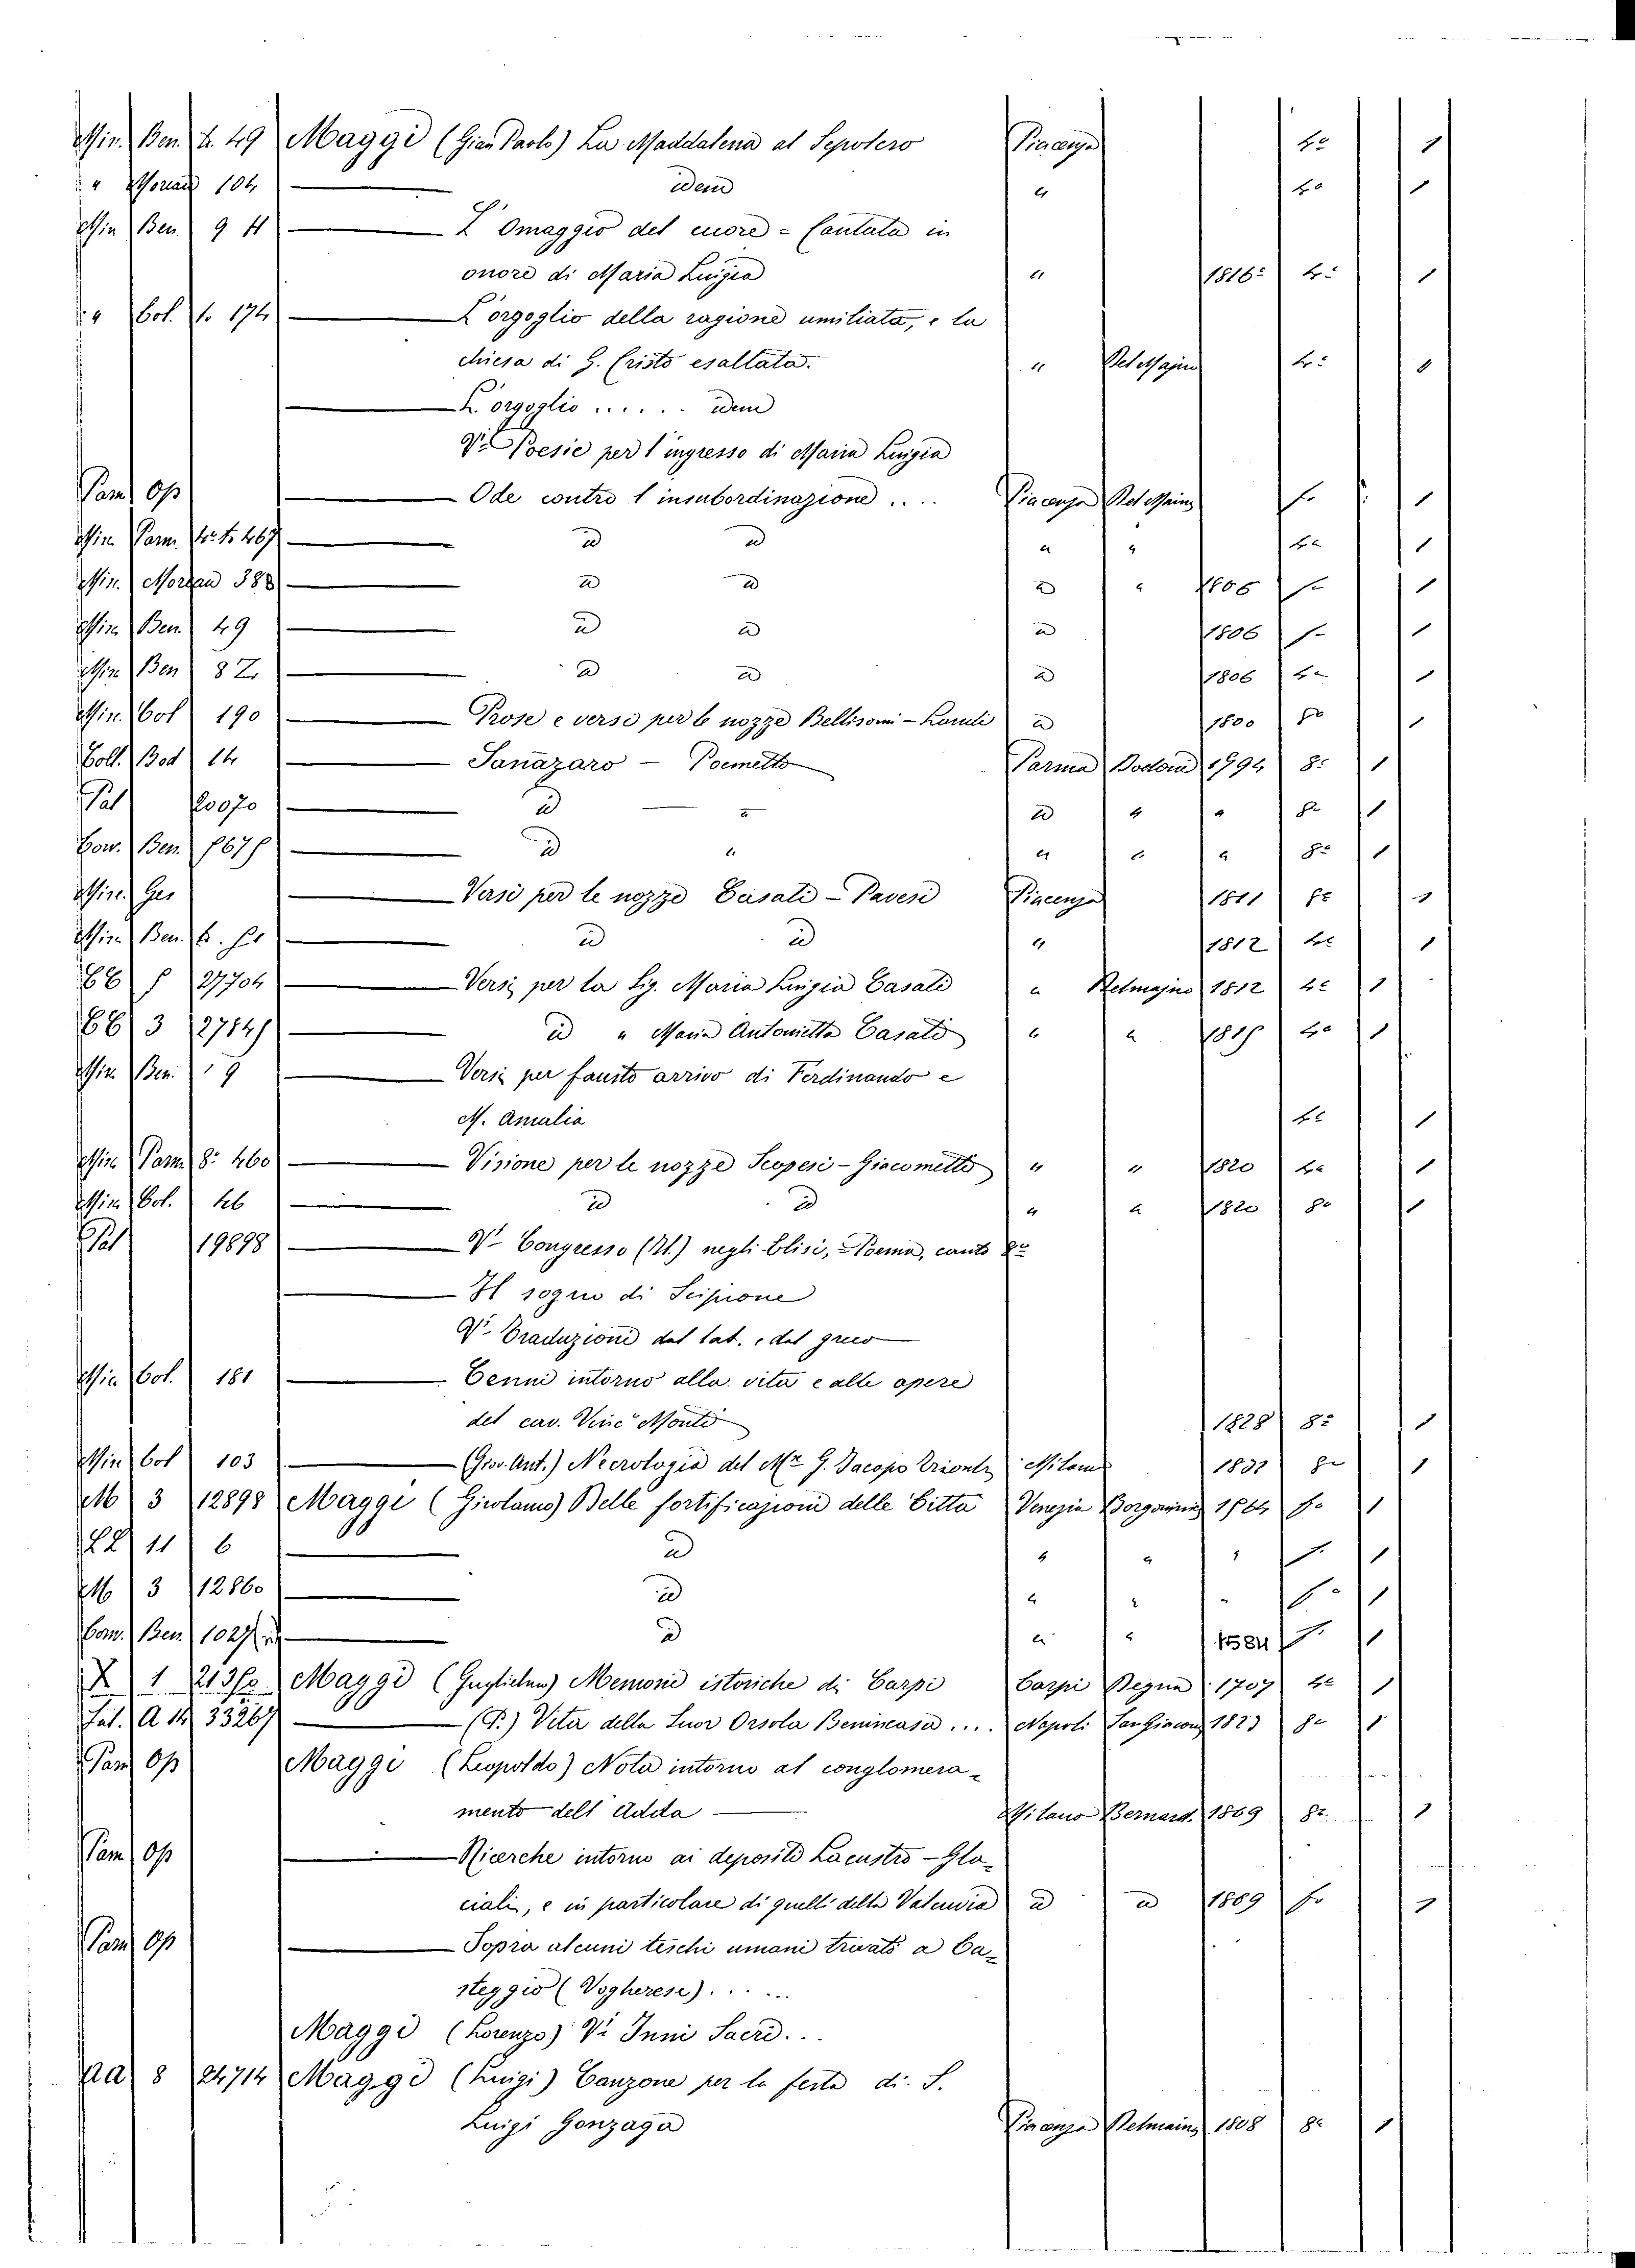 Min. Ben. 4. 49 Maggi (Gian Paolo) La Maddalena al Sepolcro Piacenza 4° 1
" Moriani 104 — idem " 4° 1
Min Ben. 9 — L'Omaggio del cuore = Cantata in
onore di Maria Luigia " 1816 4° 1
" Col. 4° 174 — L'orgoglio della ragione umiliata, e la
chiesa di G. Cristo esaltata. " Del Majno 4° 1
— L'orgoglio ...... idem
V. Poesie per l'ingresso di Maria Luigia
Pam Op — Ode contro l'insubordinazione .... Piacenza Del Maino 1
Min. Parm. 4° 467 — id id " " 4° 1
Min. Moriani 388 — id id id " 1806 1
Min. Ben. 49 — id id id 1806 1
Min. Ben 82 — id id id 1806 4° 1
Min. Col 190 — Prose e versi per le nozze Bellisomi - Landi id 1800 8° 1
Coll. Bod 14 — Sanazaro - Poemetto Parma Bodoni 1794 8° 1
Pal 20070 — id " id " " 8° 1
Com. Ben 1677 — id " " " " 8° 1
Min. Ges — Versi per le nozze Casati - Pavesi Piacenza 1811 8° 1
Min. Ben. — id id " 1812 4° 1
27704 — Versi per la Sig. Maria Luigia Casati " Delmajno 1812 4° 1
3 27847 — id " Maria Antonietta Casati " " 1817 4° 1
Min. Ben. 9 — Versi per fausto arrivo di Ferdinando e
M. Amalia 4° 1
Min Parm 8° 460 — Visione per le nozze Scopesi - Giacometti " " 1820 4° 1
Min. Col. 46 — id id " " 1820 8° 1
Pal 19898 — V. Congresso (Il) negli Elisi, Poema, canto 2°
— Il sogno di Scipione
V. Traduzioni dal lat. e dal greco
Min Col. 181 — Cenni intorno alla vita e alle opere
del cav. Vinc° Monti 1828 8° 1
Min Col 103 — (Giov. Ant.) Necrologia del Mse G. Jacopo Trivulz. Milano 1831 8° 1
M 3 12898 Maggi (Girolamo) Delle fortificazioni delle Città Venezia Borgominer 1564 f° 1
11 6 — id " " " f° 1
M 3 12860 — id " " " f° 1
Com. Ben. 1027 — id " " 1584 f° 1
X 1 Maggi (Guglielmo) Memorie istoriche di Carpi Carpi Degni 1707 4° 1
Sal. A 14 33267 — (P.) Vita della Suor Orsola Benincasa .... Napoli San Giacomo 1823 8° 1
Pam Op Maggi (Leopoldo) Nota intorno al conglomera-
mento dell'Adda — Milano Bernard. 1869 8° 1
Pam Op — Ricerche intorno ai depositi Lacustro - Gla-
ciali, e in particolare di quelli della Valcuvia id id 1869 1
Pam Op — Sopra alcuni teschi umani trovati a Ca-
steggio (Vogherese) ......
Maggi (Lorenzo) V. Inni Sacri ...
AA 8 24714 Maggi (Luigi) Canzone per la festa di S.
Luigi Gonzaga Piacenza Delmaino 1808 8° 1